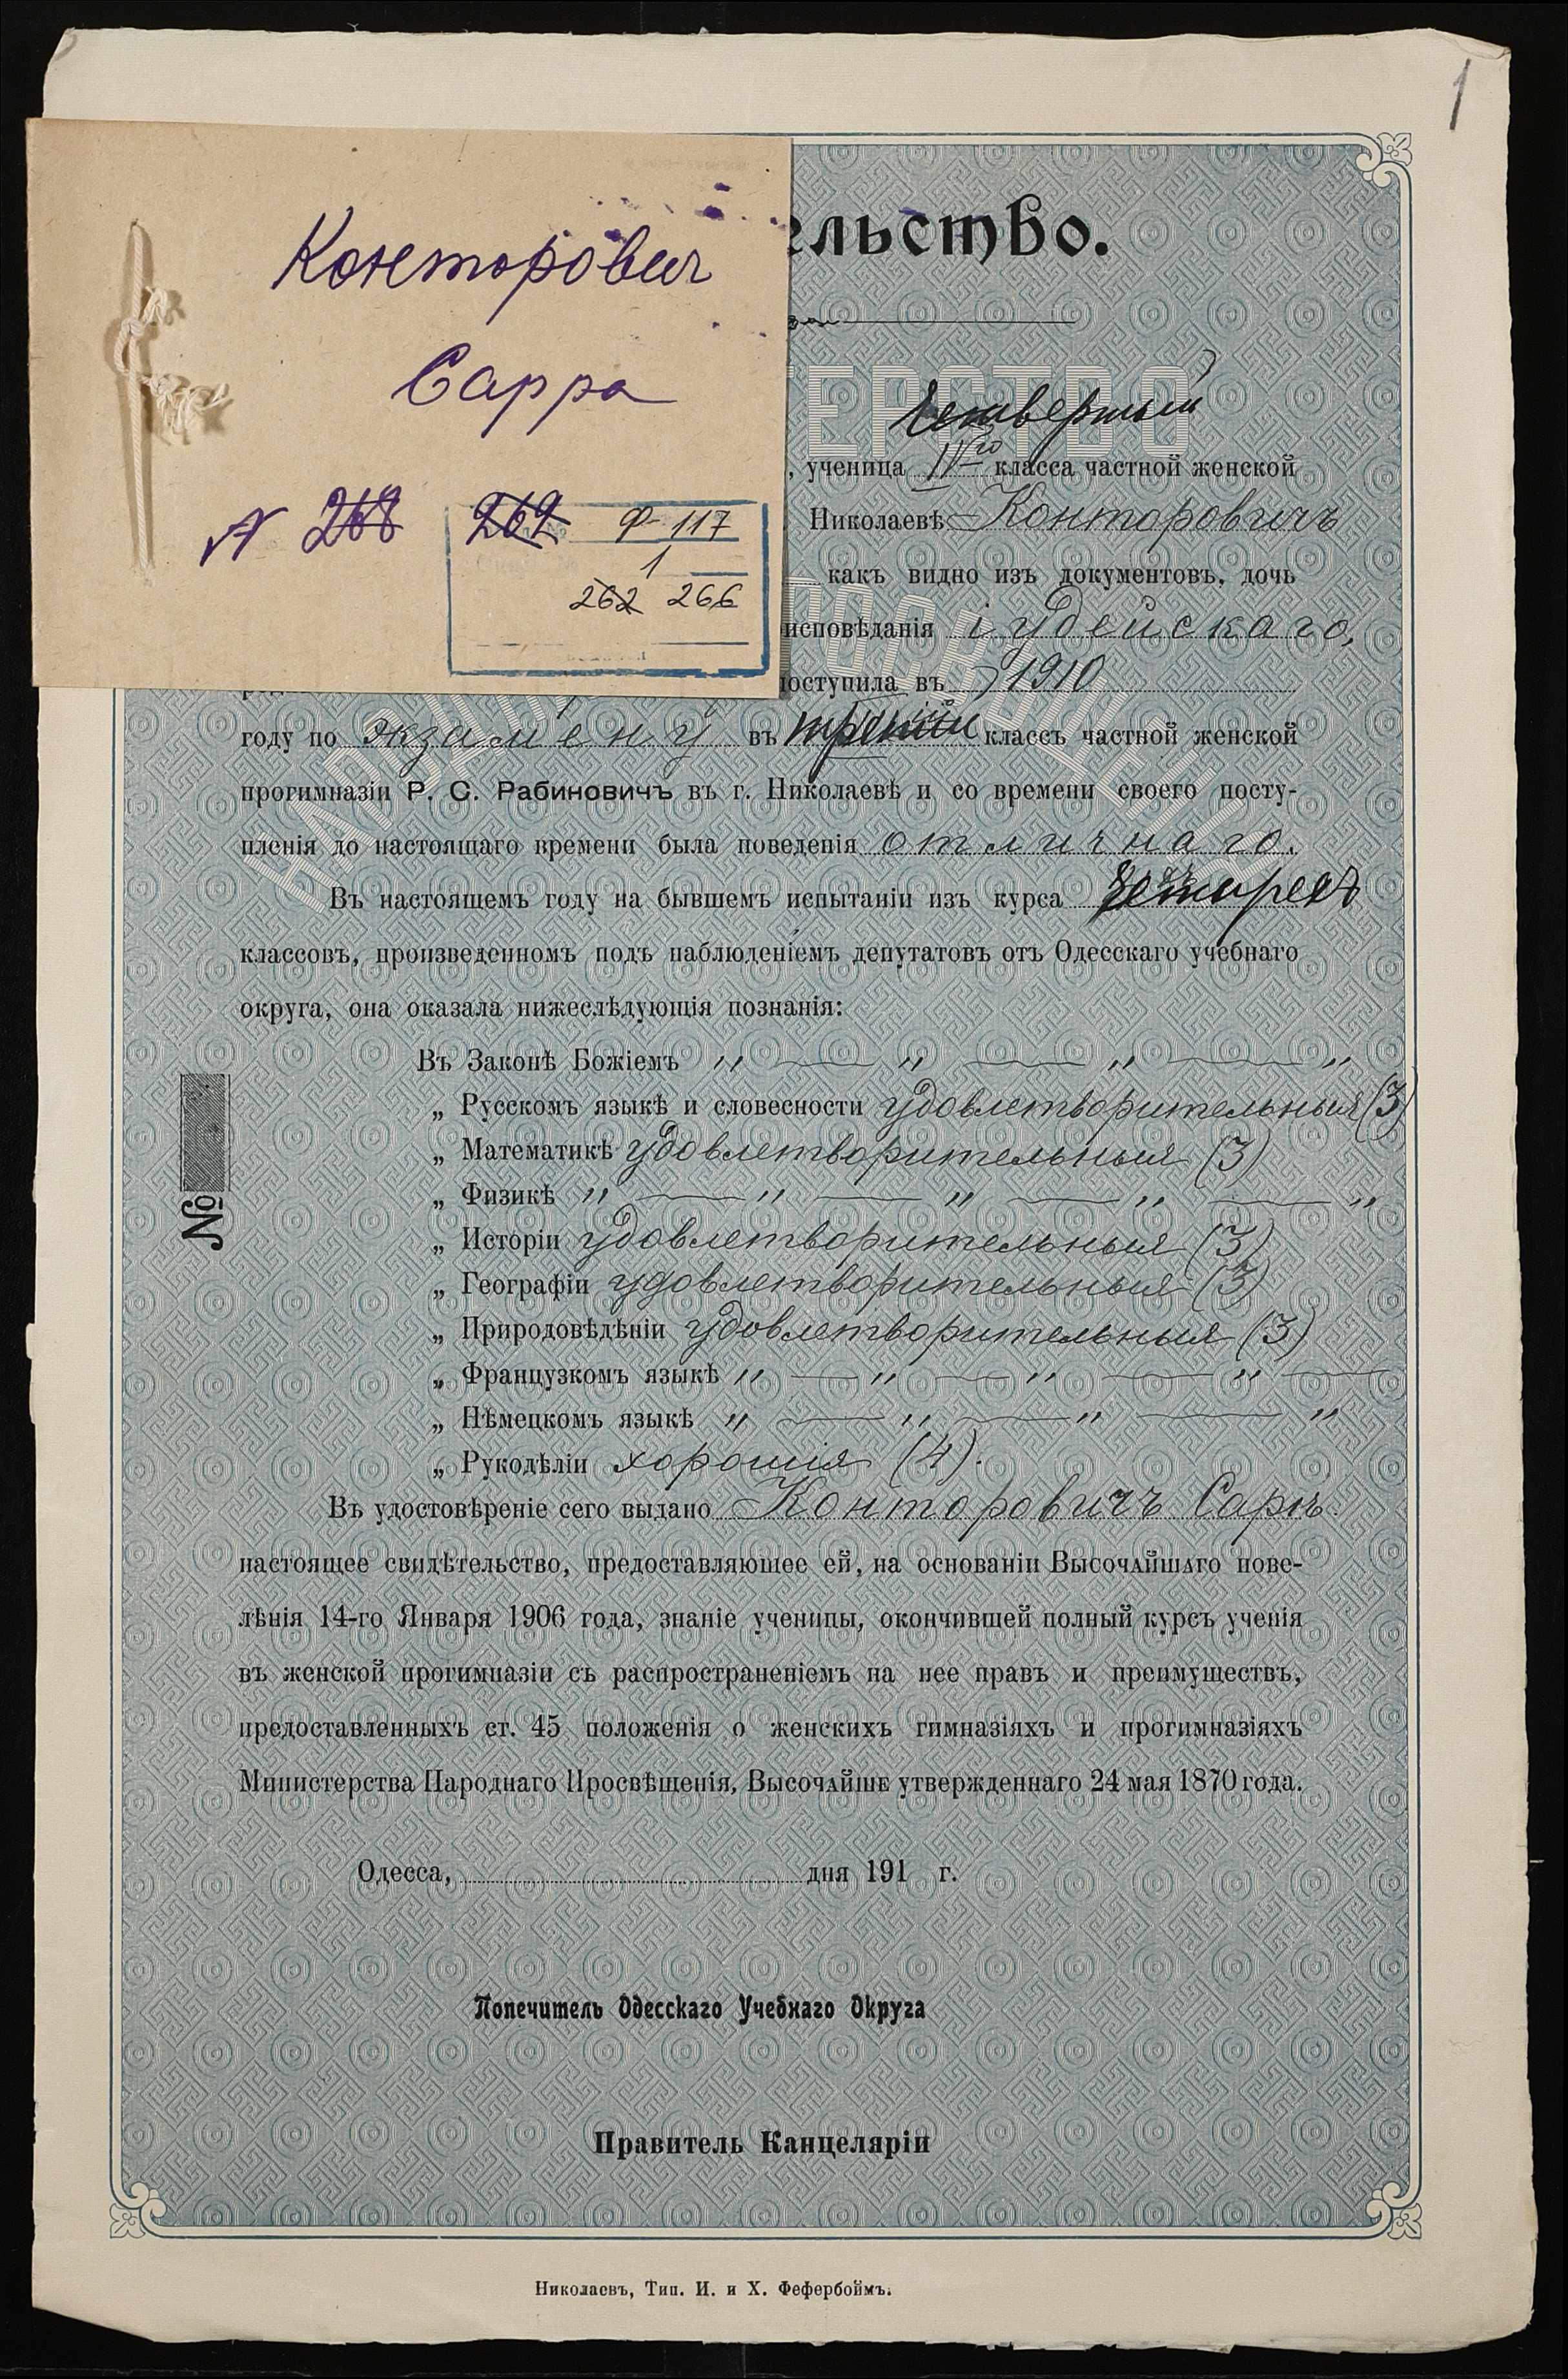 1
Конторович
Сарра
N 268 269 Ф-117
1
262 266
ельство.
МИНИСТЕРСТВО
НАРОДНАГО ПРОСВѢЩЕНІЯ
четвертый
, ученица IVго класса частной женской
Николаевѣ Конторовичъ
какъ видно изъ документовъ, дочь
исповѣданія іудейскаго,
поступила въ 1910
году по экзамену въ третій классъ частной женской
прогимназіи Р. С. Рабиновичъ въ г. Николаевѣ и со времени своего посту-
пленія до настоящаго времени была поведенія отличнаго.
Въ настоящемъ году на бывшемъ испытаніи изъ курса четырехъ
классовъ, произведенномъ подъ наблюденіемъ депутатовъ отъ Одесскаго учебнаго
округа, она оказала нижеслѣдующія познанія:
Въ Законѣ Божіемъ " — " — " — "
„ Русскомъ языкѣ и словесности удовлетворительныя (3)
„ Математикѣ удовлетворительныя (3)
„ Физикѣ " — " — " — " — "
„ Исторіи удовлетворительныя (3)
„ Географіи удовлетворительныя (3)
„ Природовѣдѣніи удовлетворительныя (3)
„ Французкомъ языкѣ " — " — " — " —
„ Нѣмецкомъ языкѣ " — " — " — "
„ Рукодѣліи хорошія (4).
Въ удостовѣреніе сего выдано Конторовичъ Сарѣ
настоящее свидѣтельство, предоставляющее ей, на основаніи Высочайшаго пове-
лѣнія 14-го Января 1906 года, знаніе ученицы, окончившей полный курсъ ученія
въ женской прогимназіи съ распространеніемъ на нее правъ и преимуществъ,
предоставленныхъ ст. 45 положенія о женскихъ гимназіяхъ и прогимназіяхъ
Министерства Народнаго Просвѣщенія, Высочайше утвержденнаго 24 мая 1870 года.
№
Одесса, дня 191 г.
Попечитель Одесскаго Учебнаго Округа
Правитель Канцеляріи
Николаевъ, Тип. И. и Х. Фефербоймъ.